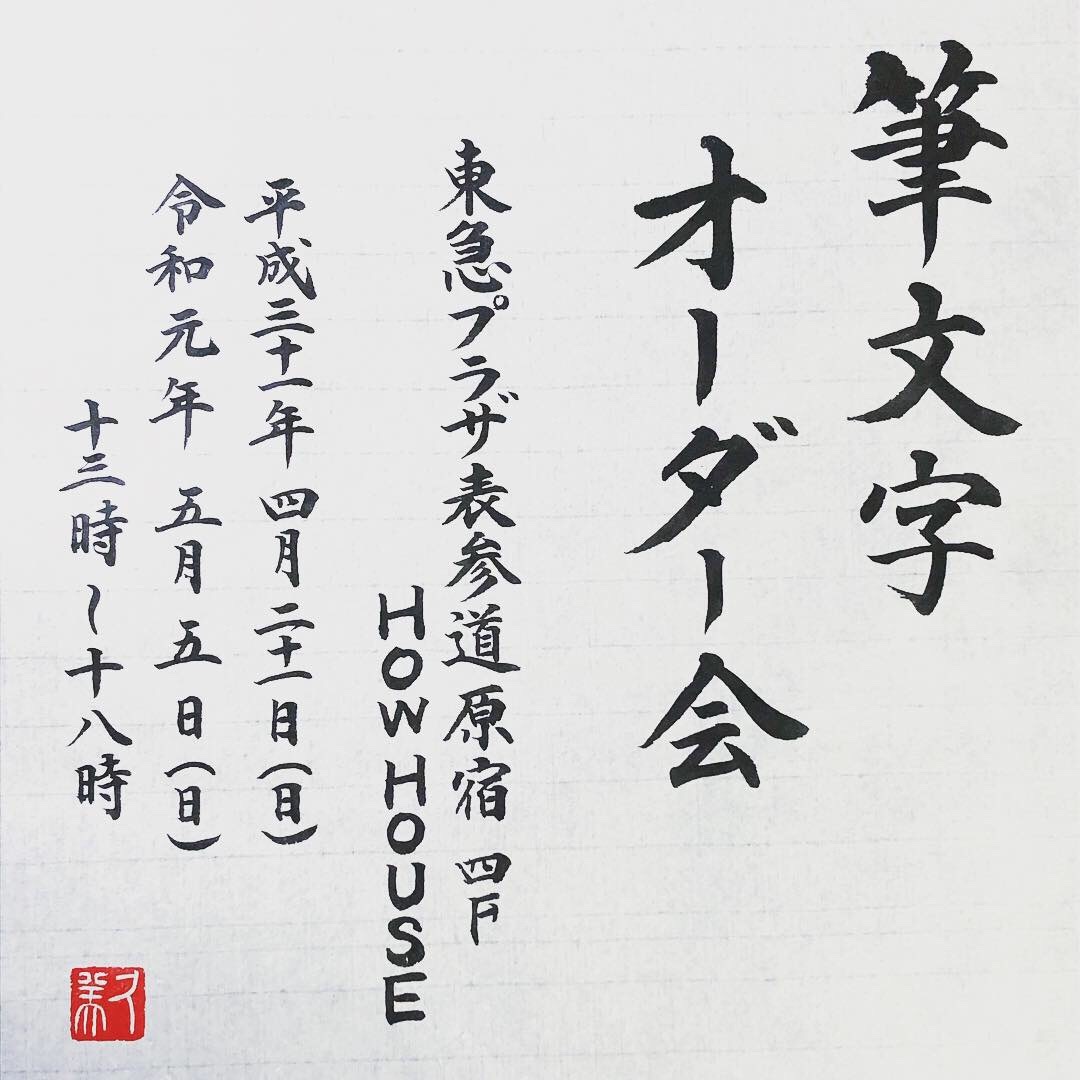 筆文字
オーダー会
東急プラザ表参道原宿 四F
HOW HOUSE
平成三十一年 四月二十一日(日)
令和元年 五月五日(日)
十三時〜十八時